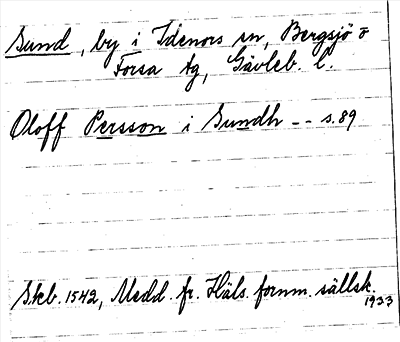 Sund, by i Idenors sn, Bergsjö o
Forsa tg, Gävleb. l.
Oloff Persson i Sundh -- s. 89
Skb. 1542, Medd. fr. Häls. fornm. sällsk.
1933